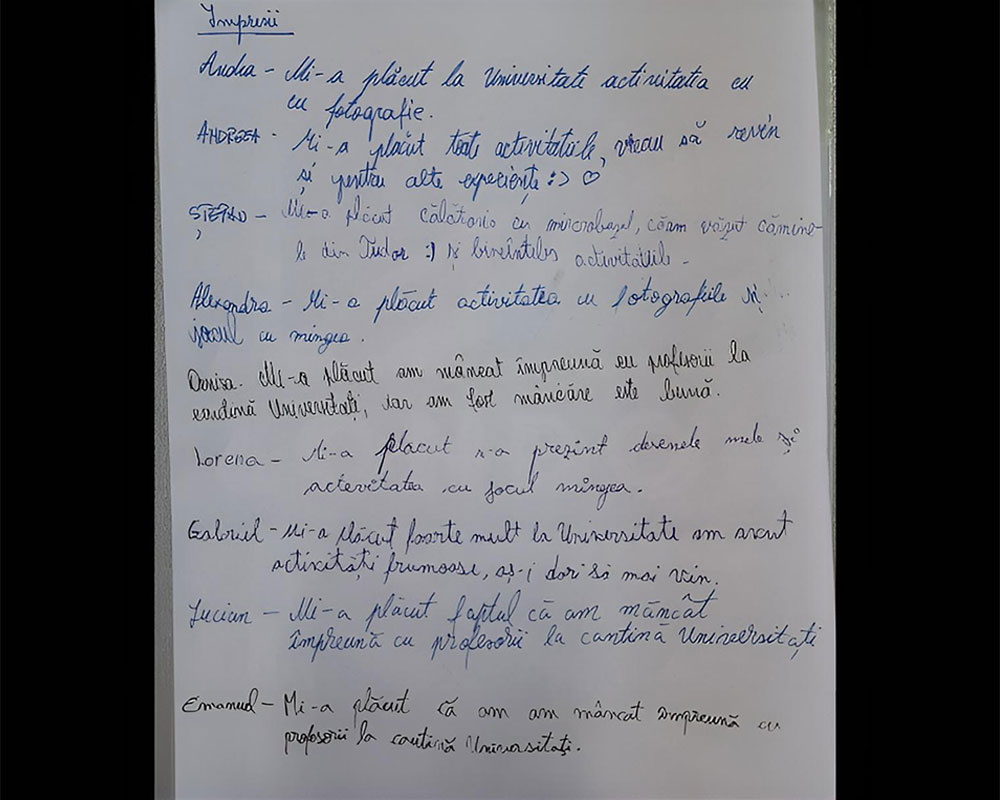 Impresii
Andra - Mi-a plăcut la Universitate activitatea cu
cu fotografie.
ANDREEA - Mi-a plăcut toate activitatiile, vreau să revin
și pentru alte experiențe :> ♡
ȘTEFAN - Mi-a plăcut călătoria cu microbuzul, căam văzut cămine-
le din Tudor :) și bineînteles activitatiile -
Alexandra - Mi-a plăcut activitatea cu fotografiile și
jocul cu mingea.
Denisa. Mi-a plăcut am mâncat împreună cu profesorii la
candină Universitați, iar am fost mâncăre este bună.
Lorena - Mi-a placut s-a prezint desenele mele și
actevitatea cu jocul mîngea.
Gabriel - Mi-a plăcut foarte mult la Universitate am avut
activități frumoase, aș-i dori să mai vin.
Lucian - Mi-a plăcut faptul că am mâncât
împreună cu profesorii la cantină Universitați
Emanuel - Mi-a plăcut că am am mâncat împreună cu
profesorii la cantină Universitați.